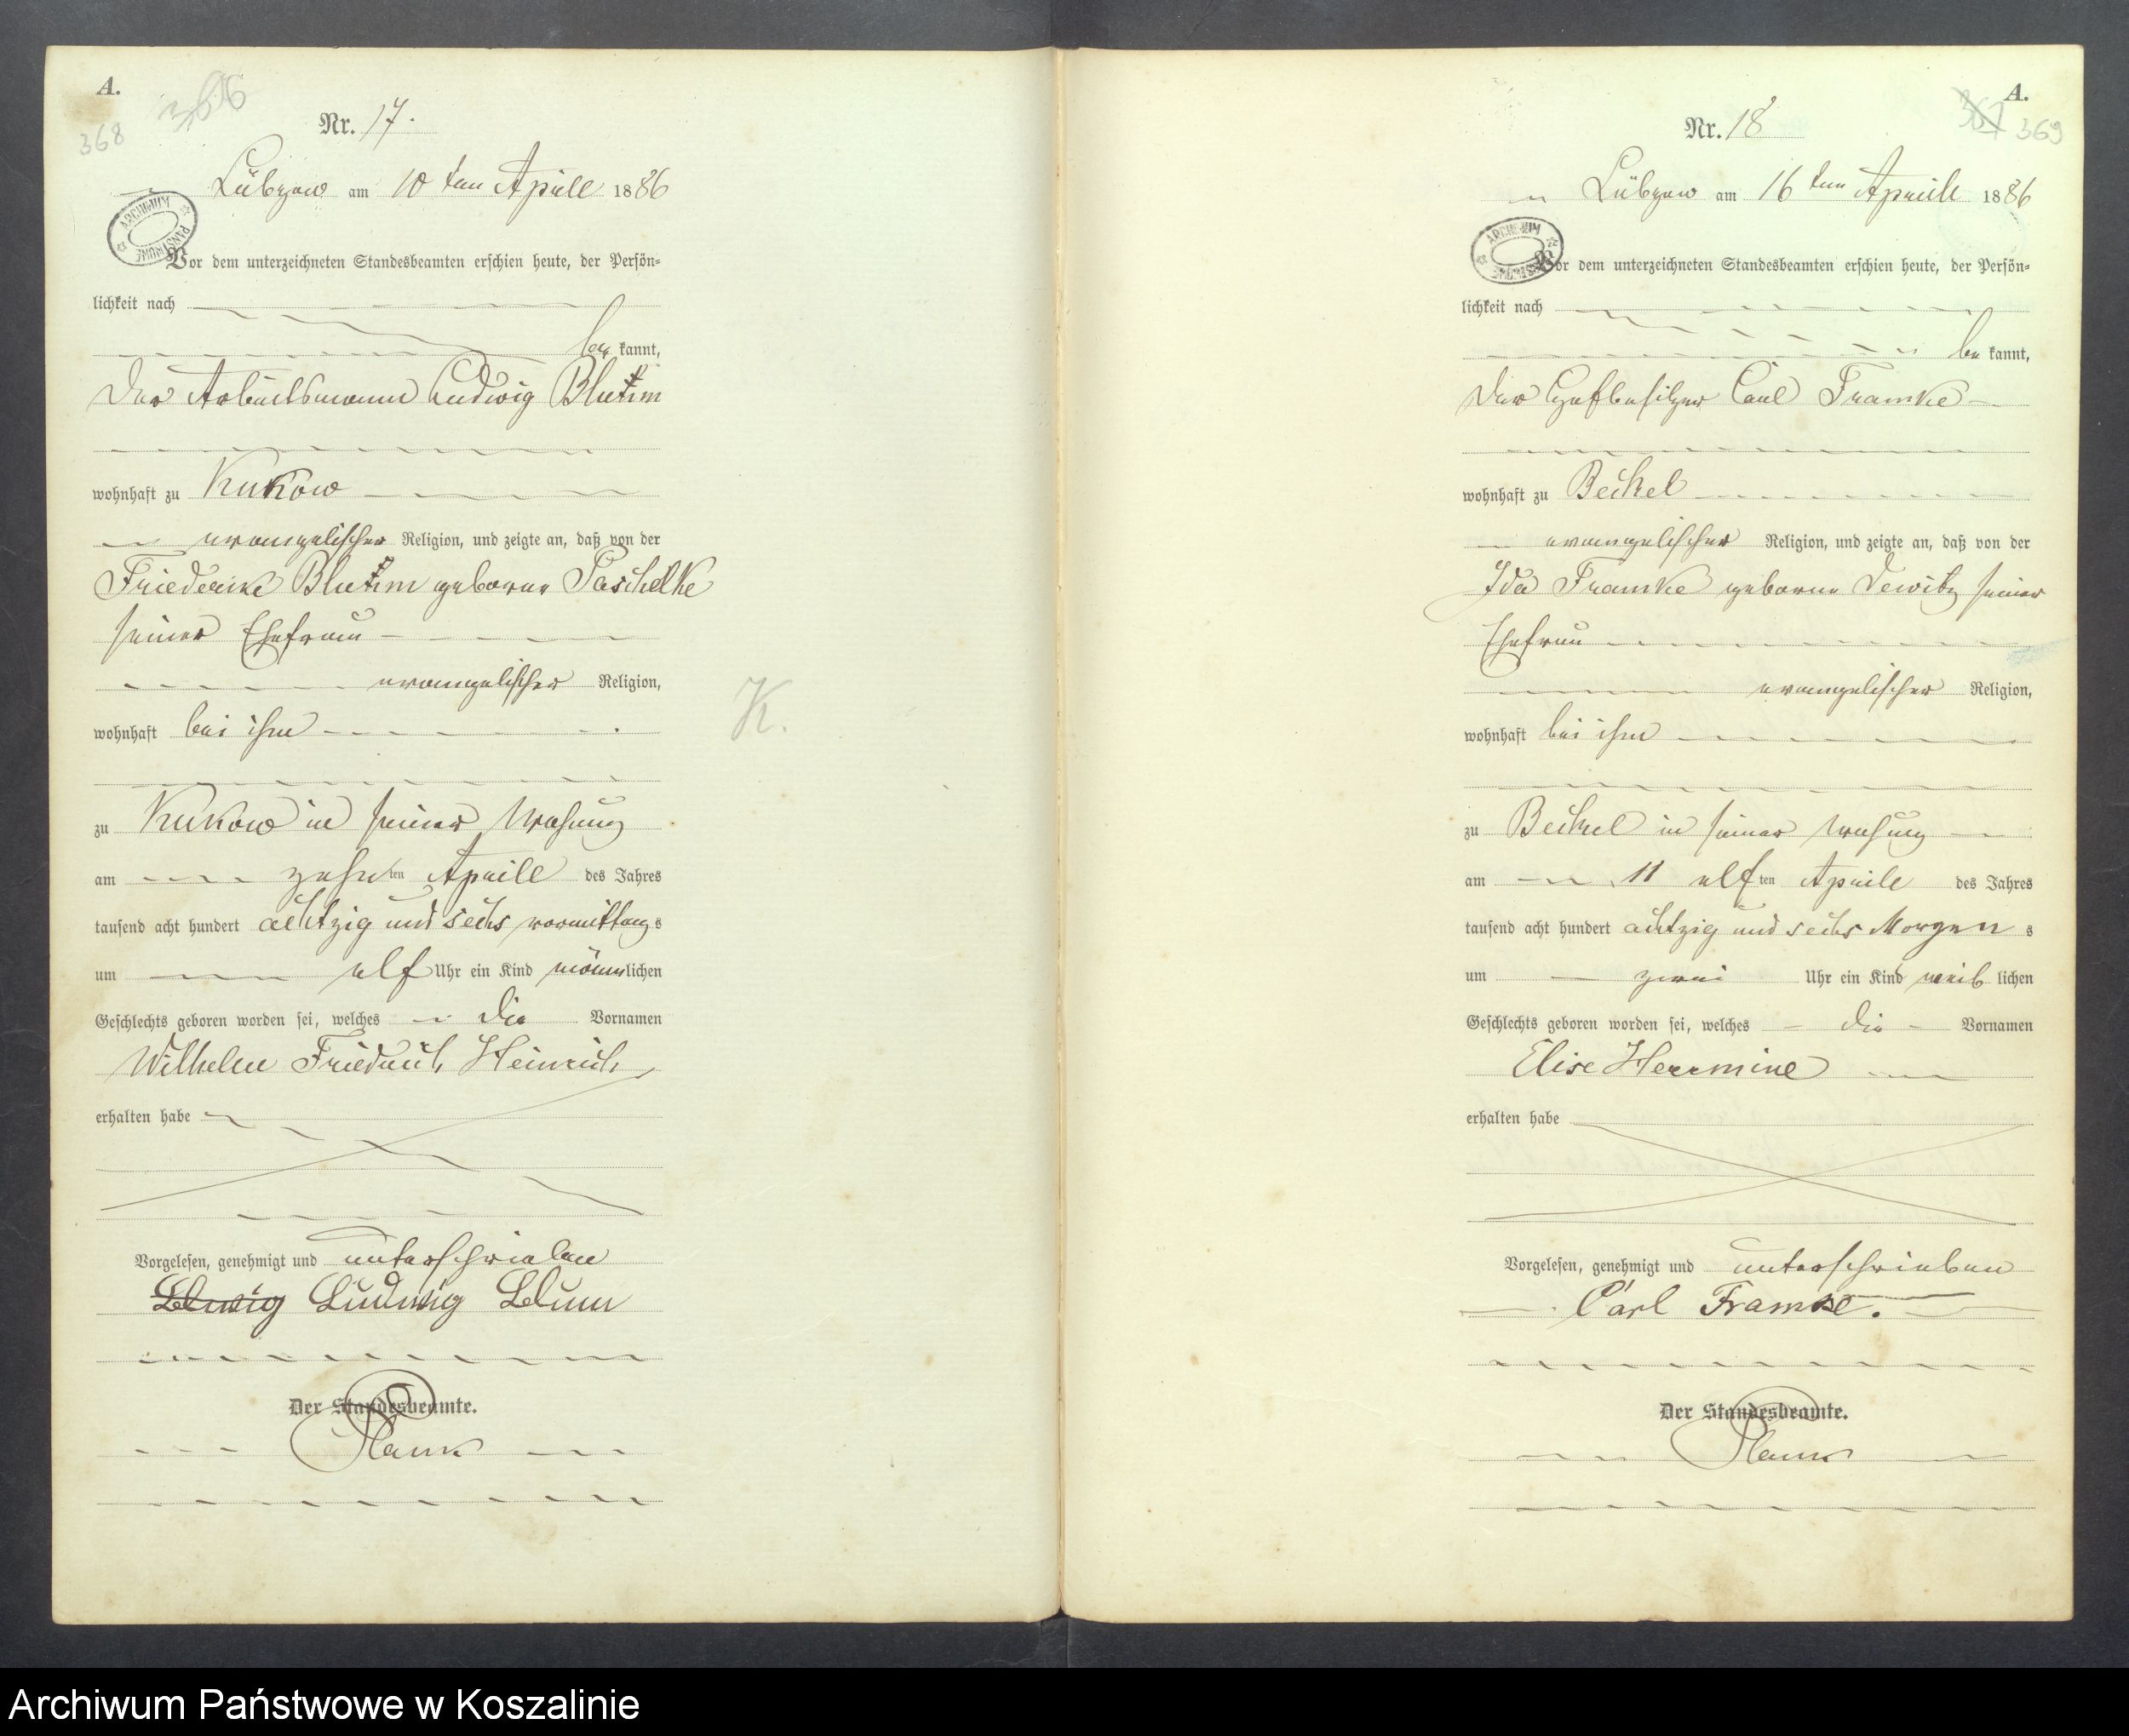 A.
366
368
Nr. 17.
Lübzow am 10 ten Aprill 1886
ARCHIWUM PAŃSTWOWE
Vor dem unterzeichneten Standesbeamten erschien heute, der Persön-
lichkeit nach
be kannt,
Der Arbeitsmann Ludwig
wohnhaft zu Kukow
evangelischer Religion, und zeigte an, daß von der
Friederike geborne Paschelke
seiner Ehefrau
evangelischer Religion,
wohnhaft bei ihm
K.
zu Kukow in seiner Wohung
am zehn ten Aprill des Jahres
tausend acht hundert achtzig und sechs vormittag s
um elf Uhr ein Kind männlichen
Geschlechts geboren worden sei, welches die Vornamen
Wilhelm Friedrich Heinrich
erhalten habe
Vorgelesen, genehmigt und unterschrieben
Ludwig Blum
Der Standesbeamte.
Plank
A.
367 369
Nr. 18
Lübzow am 16 ten Aprill 1886
ARCHIWUM PAŃSTWOWE
Vor dem unterzeichneten Standesbeamten erschien heute, der Persön-
lichkeit nach
be kannt,
Der Hofbesitzer Carl Framke
wohnhaft zu Beckel
evangelischer Religion, und zeigte an, daß von der
Ida Framke geborne Dewitz seiner
Ehefrau
evangelischer Religion,
wohnhaft bei ihm
zu Beckel in seiner Wohung
am 11 elf ten Aprile des Jahres
tausend acht hundert achtzig und sechs Morgen s
um zwei Uhr ein Kind weib lichen
Geschlechts geboren worden sei, welches die Vornamen
Elise Herrmine
erhalten habe
Vorgelesen, genehmigt und unterschrieben
Carl Framke.
Der Standesbeamte.
Plank
Archiwum Państwowe w Koszalinie